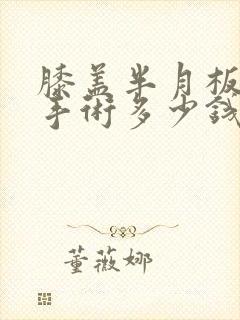 膝盖半月板
手術多少钱
董薇娜